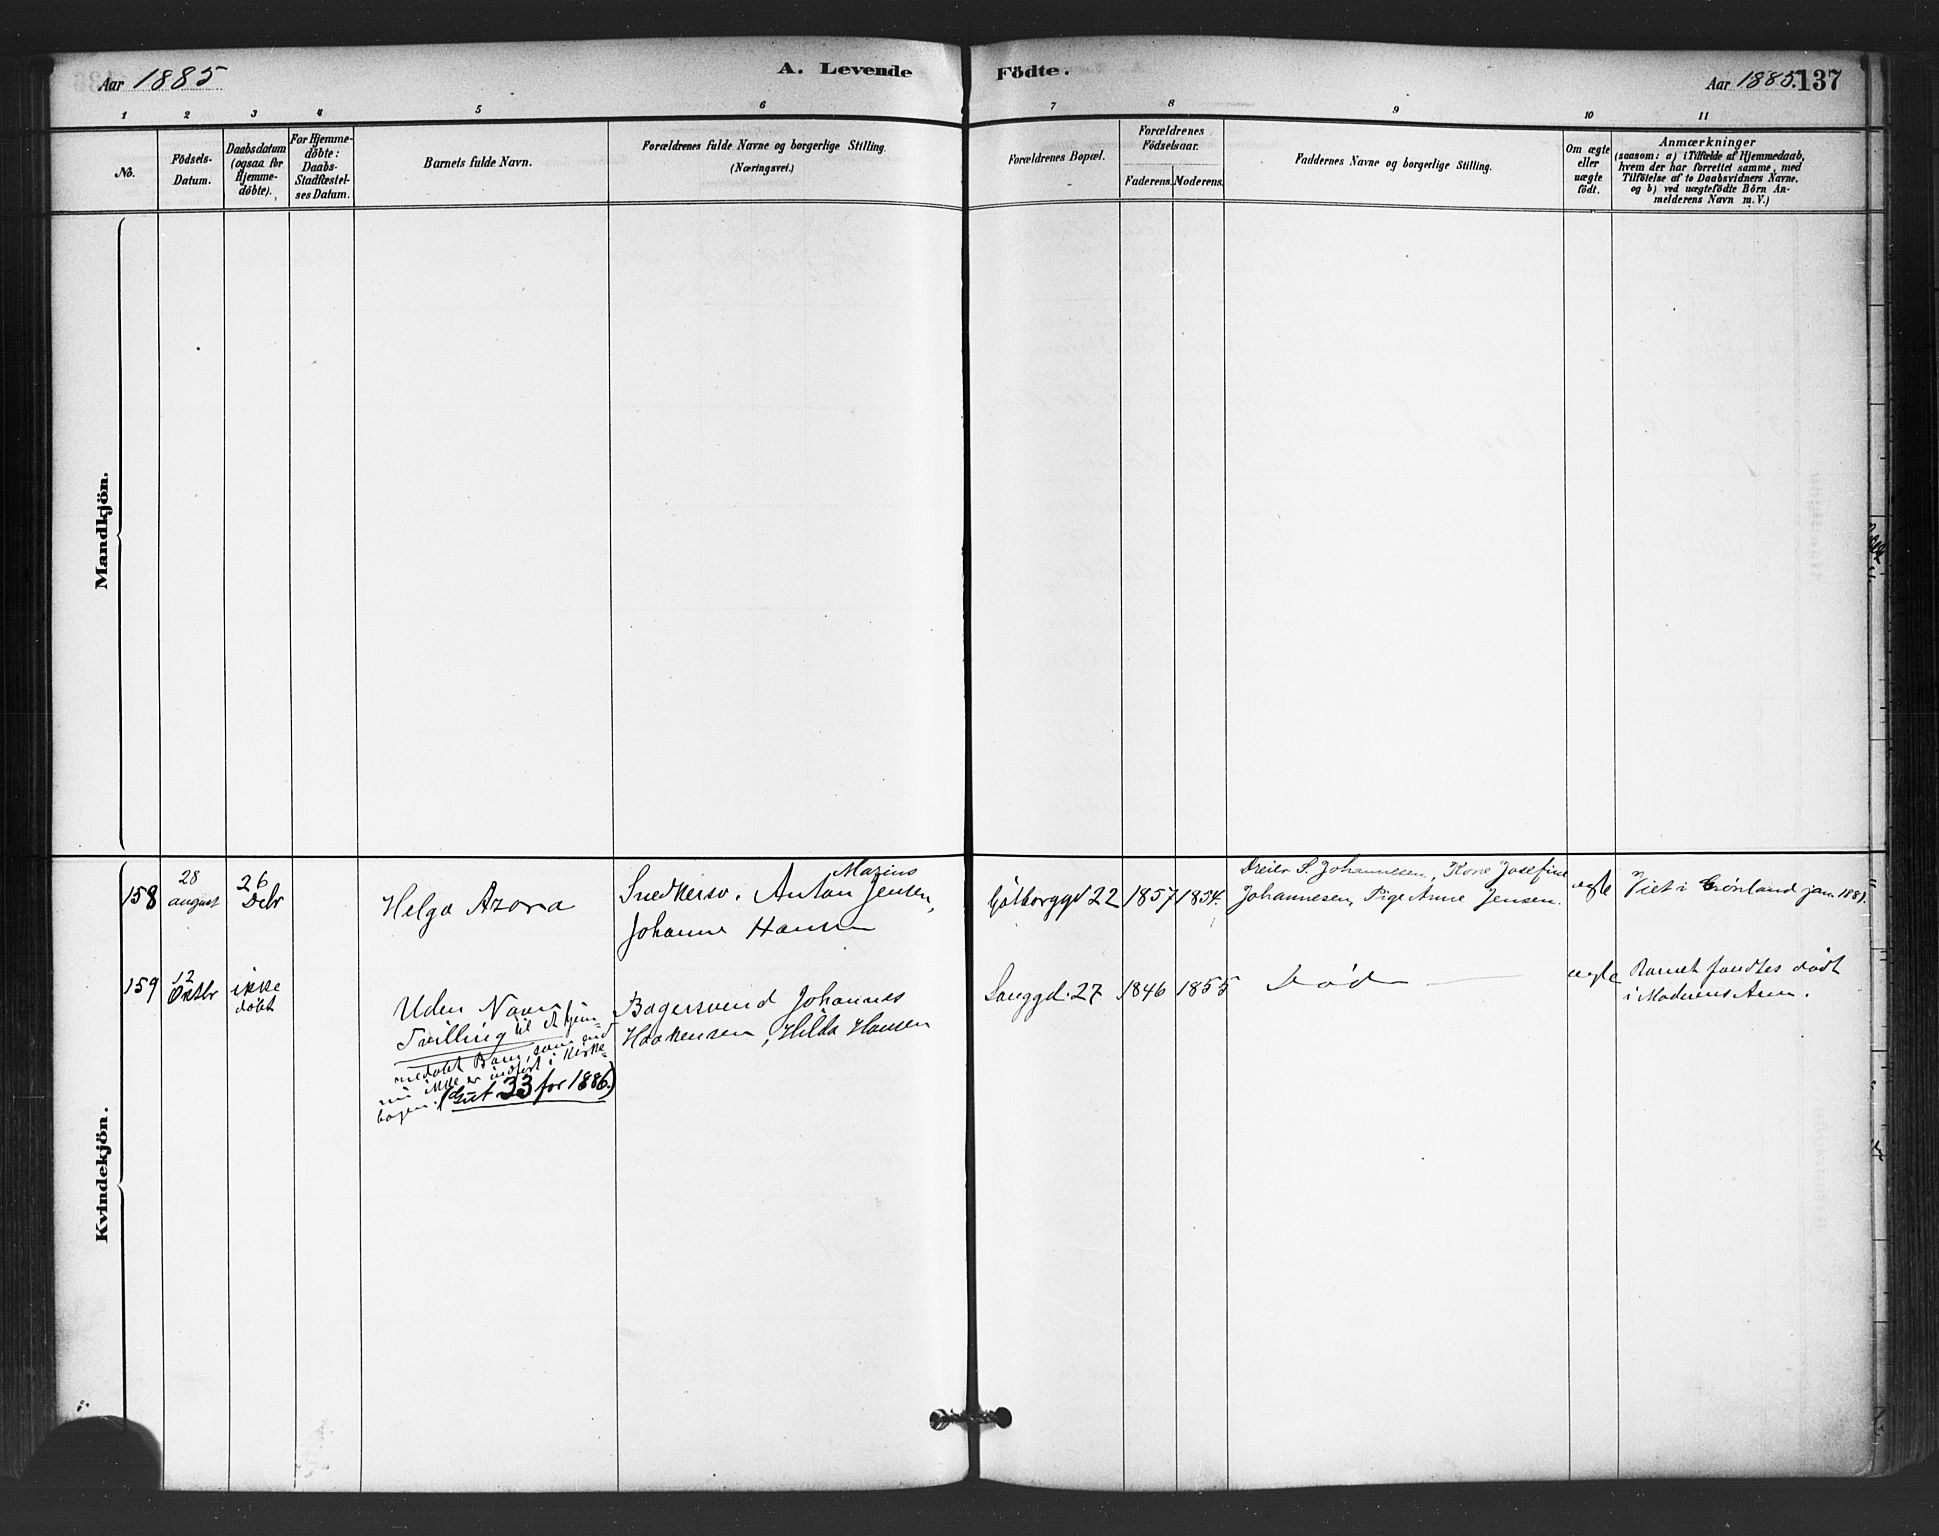 Aar 1885
A. Levende Födte.
Aar 1885. 137
1 2 3 4 5 6 7 8 9 10 11
No.
Födsels-
Datum.
Daabsdatum
(ogsaa for
Hjemme-
döbte).
For Hjemme-
döbte:
Daabs-
Stadfæstel-
ses Datum.
Barnets fulde Navn.
Forældrenes fulde Navne og borgerlige Stilling.
(Næringsvei.)
Forældrenes Bopæl.
Forældrenes
Födselsaar.
Faderens. Moderens.
Faddernes Navne og borgerlige Stilling.
Om ægte
eller
uægte
födt.
Anmærkninger
(saasom: a) i Tilfælde af Hjemmedaab,
hvem der har forrettet samme, med
Tilföielse af to Daabsvidners Navne,
og b) ved uægtefödte Börn An-
melderens Navn m. V.)
Mandkjön.
Kvindekjön.
158
28
august
26
Debr
Helga Azora
Marius
Snedkersv. Anton Jensen,
Johanne Hansen
22
1857
1854.
Dreier S. Johannesen, Kone Josefine
Johannesen, Pige Anne Jensen.
ægte
Viet i Grönland jan. 188
159
12
Oktbr
ikke
döbt
Uden Navn
Tvilling til et hjem=
medöbt Barn, som end
nu ikke er indfört i Kirke=
bogen. (Gut 33 for 1886.)
Bagersvend Johannes
Haakensen, Hilda Hansen
Langgd. 27
1846
1855
Död
ægte
Barnet fandtes dödt
i Moderens Arm.